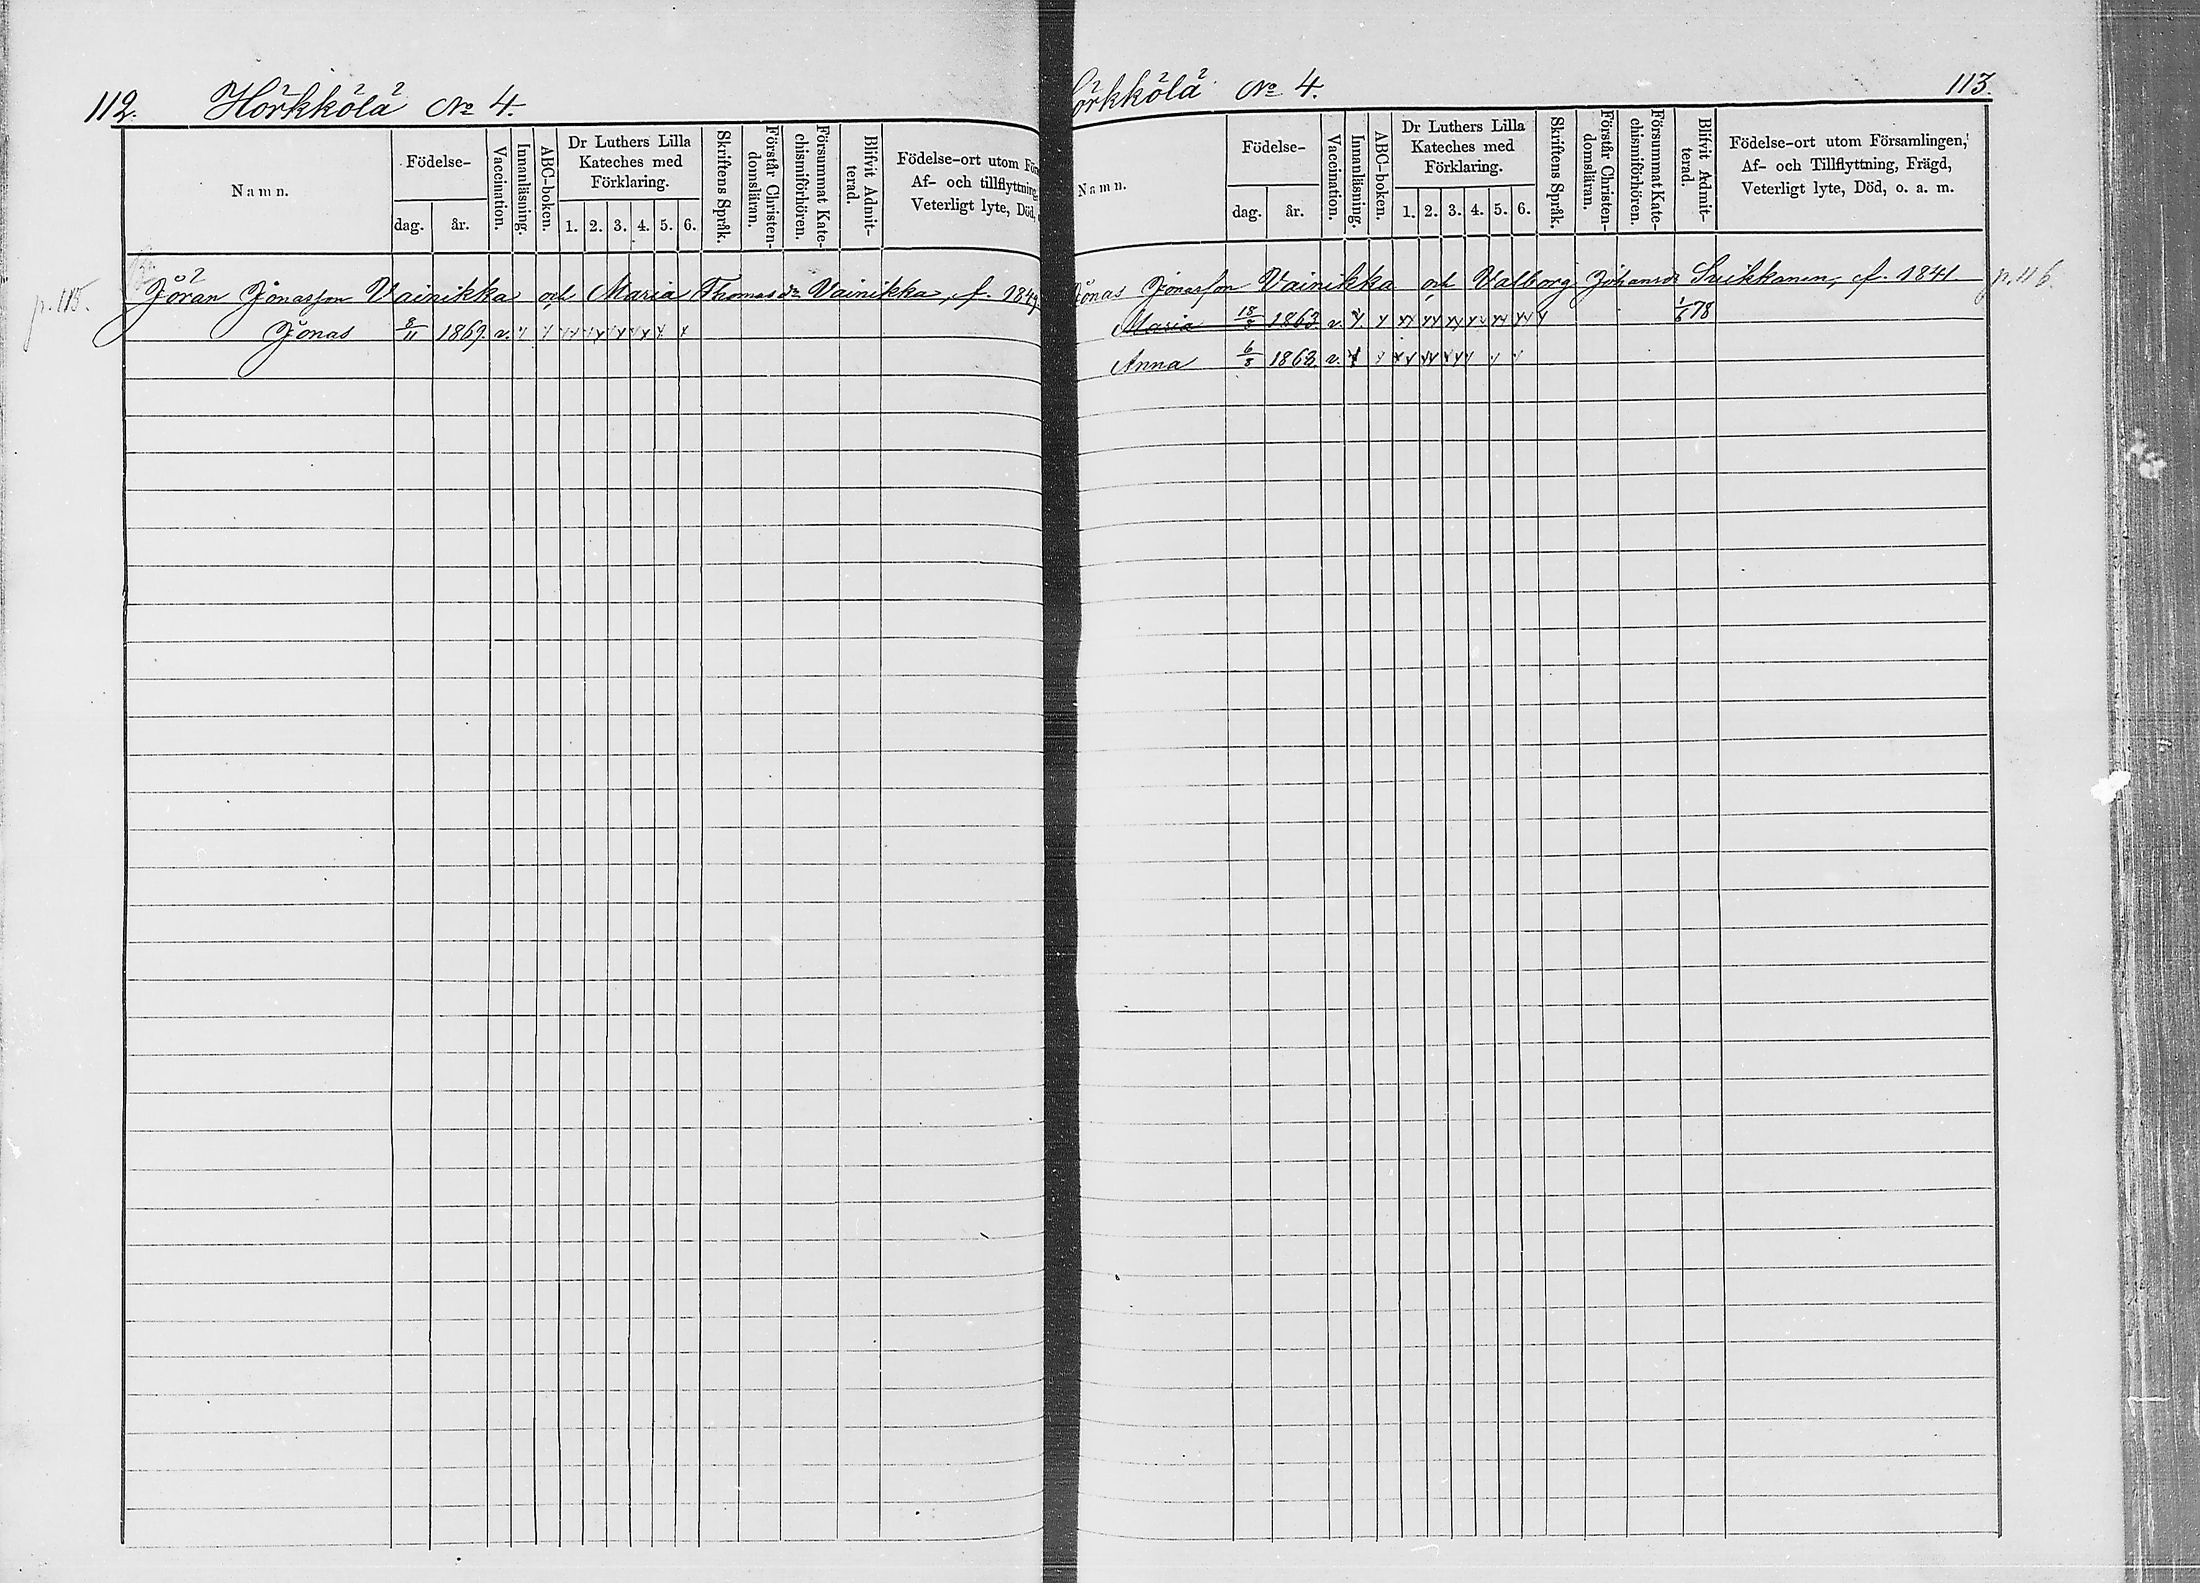 112. Hörkkölä No 4.
Namn.
Födelse-
dag. år.
Vaccination.
Innanläsning.
ABC-boken.
Dr Luthers Lilla
Kateches med
Förklaring.
1. 2. 3. 4. 5. 6.
Skriftens Språk.
Förstår Christen-
domsläran.
Försummat Kate-
chismiförhören.
Blifvit Admit-
terad.
Födelse-ort utom För
Af- och tillflyttning
Veterligt lyte, Död,
p. 115. Jöran Jonasson Vainikka och Maria Thomasdr Vainikka, f. 1849.
Jonas 8/11 1869. v. x x xx xx xx xx x x
örkkölä No 4. 113.
Namn.
Födelse-
dag. år.
Vaccination.
Innanläsning.
ABC-boken.
Dr Luthers Lilla
Kateches med
Förklaring.
1. 2. 3. 4. 5. 6.
Skriftens Språk.
Förstår Christen-
domsläran.
Försummat Kate-
chismiförhören.
Blifvit Admit-
terad.
Födelse-ort utom Församlingen,
Af- och Tillflyttning, Frägd,
Veterligt lyte, Död, o. a. m.
Jonas Jonasson Vainikka och Valborg Johansdr Suikkanen, f. 1841 p. 116.
Maria 1863 v. x x xx xx xx xx xx xx x 1/6 78
Anna 6/8 1868 v. x x xx xx xx x x